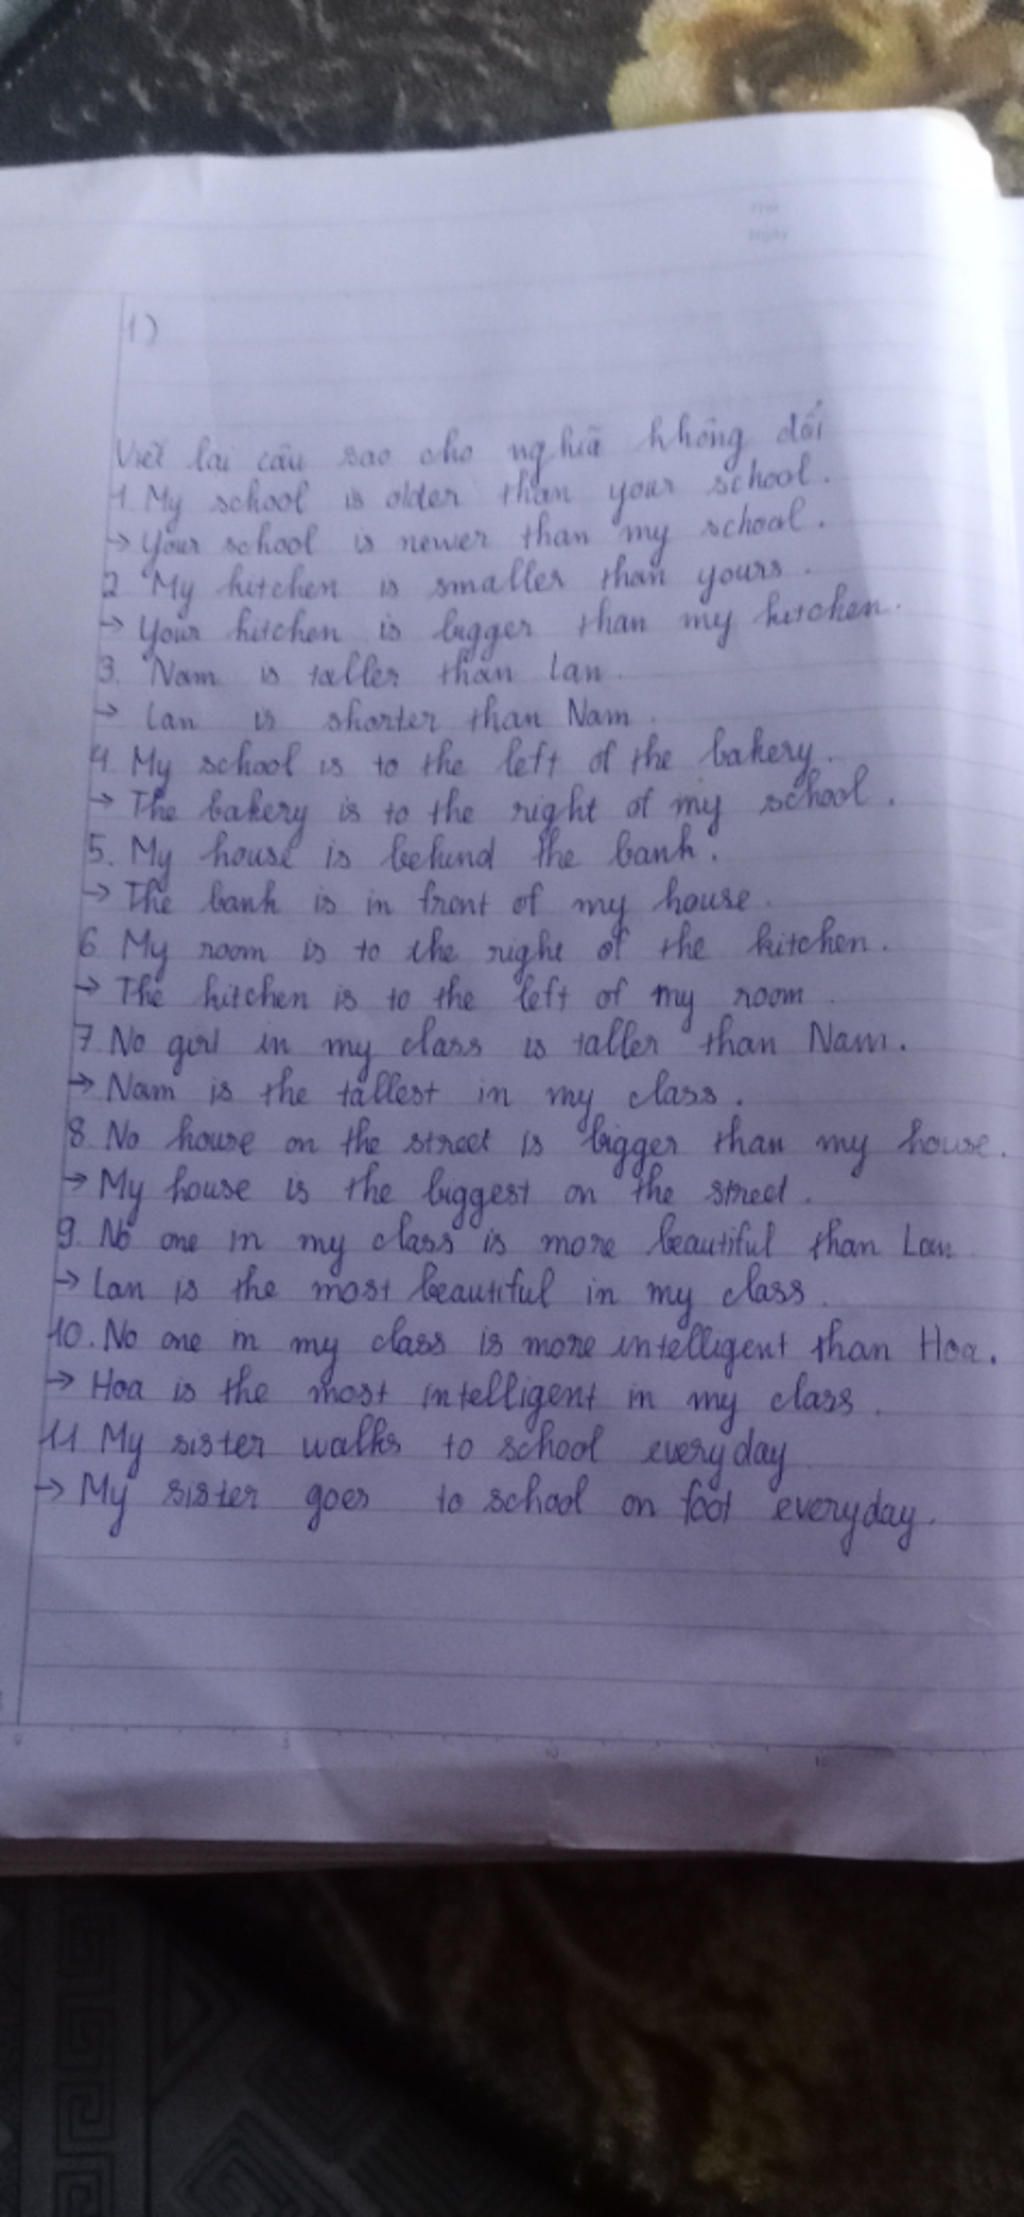 1)
Viết lại câu sao cho nghĩa không đổi
1. My school is older than your school.
→ Your school is newer than my school.
2. My kitchen is smaller than yours.
→ Your kitchen is bigger than my kitchen.
3. Nam is taller than Lan.
→ Lan is shorter than Nam.
4. My school is to the left of the bakery.
→ The bakery is to the right of my school.
5. My house is behind the bank.
→ The bank is in front of my house.
6. My room is to the right of the kitchen.
→ The kitchen is to the left of my room.
7. No girl in my class is taller than Nam.
→ Nam is the tallest in my class.
8. No house on the street is bigger than my house.
→ My house is the biggest on the street.
9. No one in my class is more beautiful than Lan
→ Lan is the most beautiful in my class.
10. No one in my class is more intelligent than Hoa.
→ Hoa is the most intelligent in my class.
11. My sister walks to school everyday
→ My sister goes to school on foot everyday.